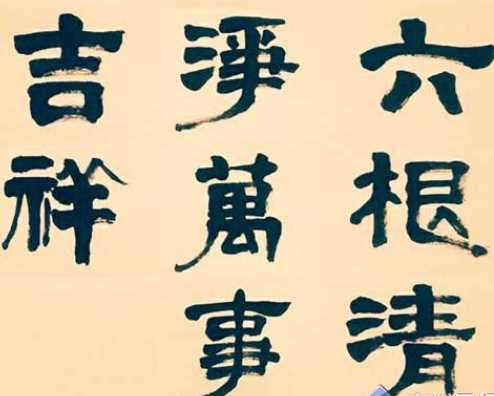 六根清
淨萬事
吉祥